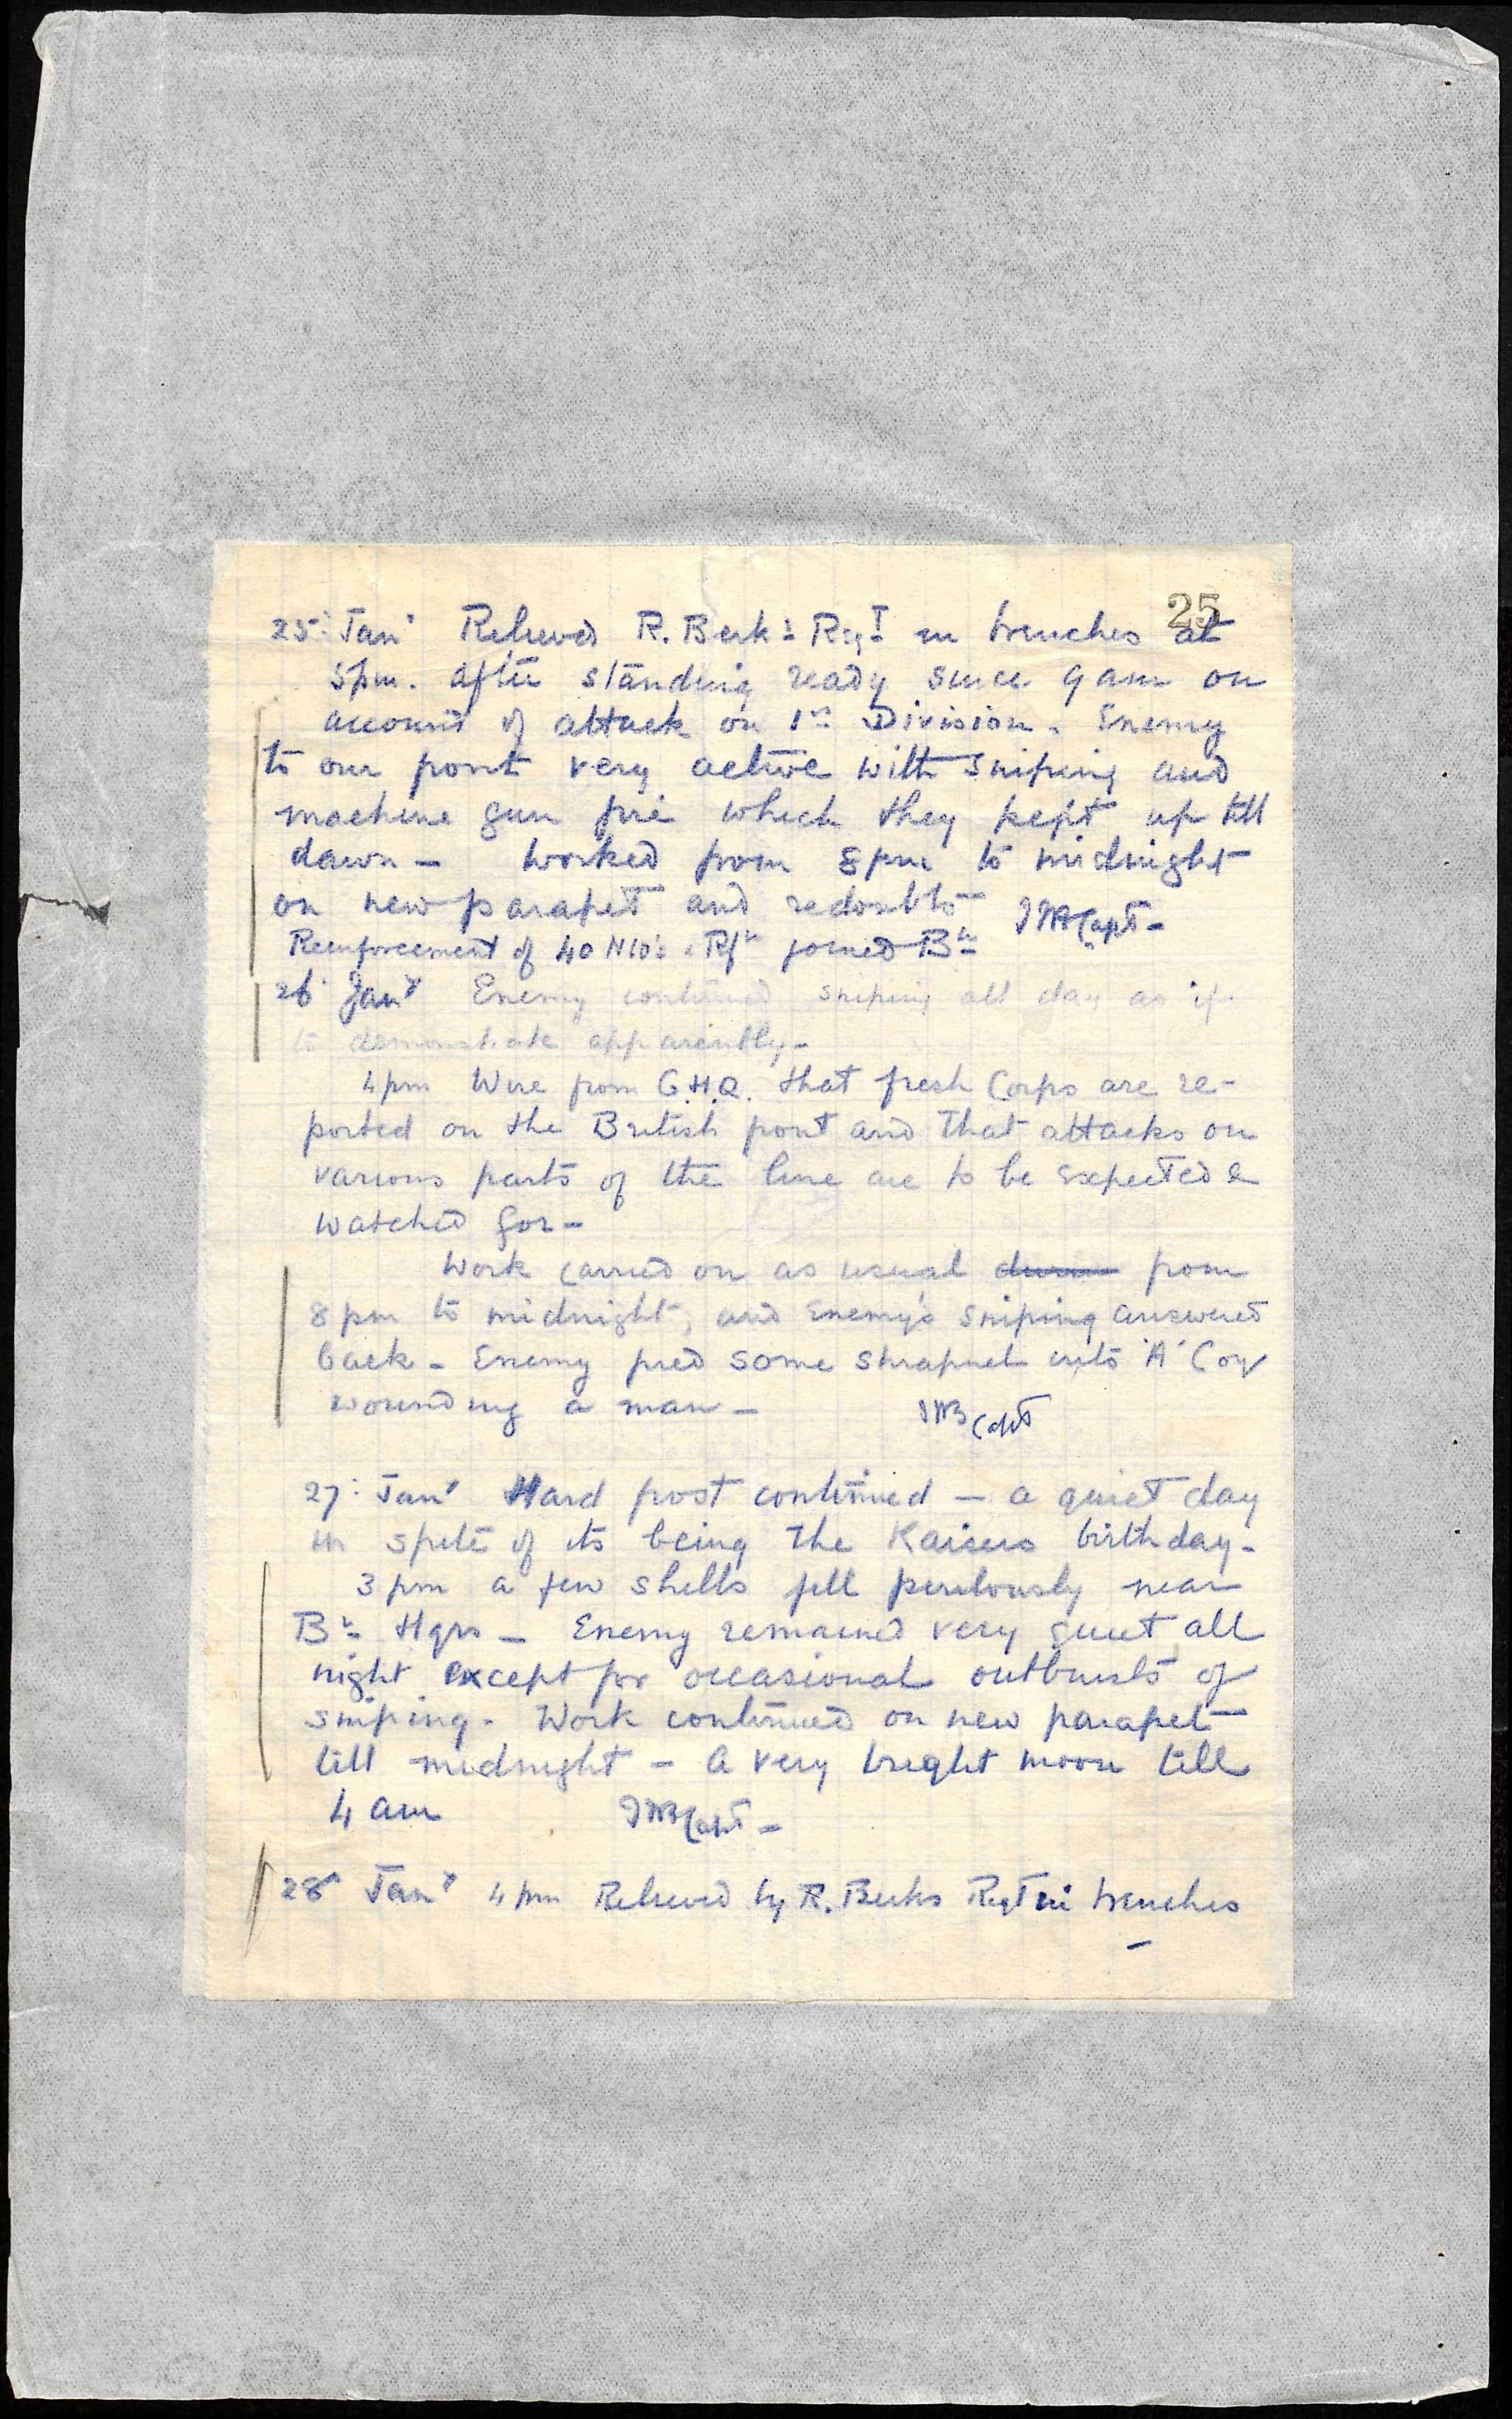 25
25th Jany Relieved R. Berks Regt in trenches at
5pm. after standing ready since 9 am on
account of attack on 1st Division. Enemy
to our front very active with sniping and
machine gun fire which they kept up till
dawn – worked from 8 pm to midnight
on new parapet and redoubts – Capt –
Reinforcement of 40 NCO's & Rfn joined Bn
26 Jany Enemy continued sniping all day as if
to demonstrate apparently –
4 pm Wire from G.H.Q. that fresh Corps are re-
ported on the British front and that attacks on
various parts of the line are to be expected &
watched for –
Work carried on as usual from
8 pm to midnight, and Enemy's sniping answered
back – Enemy fired some shrapnel into 'A' Coy
wounding a man –
Capt
27th Jany Hard frost continued – a quiet day
in spite of its being the Kaisers birthday –
3 pm a few shells fell perilously near
Bn Hqrs – Enemy remained very quiet all
night except for occasional outbursts of
sniping – Work continued on new parapet
till midnight – A very bright moon till
4 am Capt –
28th Jany 4 pm Relieved by R. Berks Regt in trenches
–